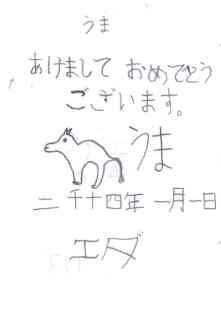 うま
あけまして おめでとう
ございます。
うま
二千十四年 一月一日
エダ